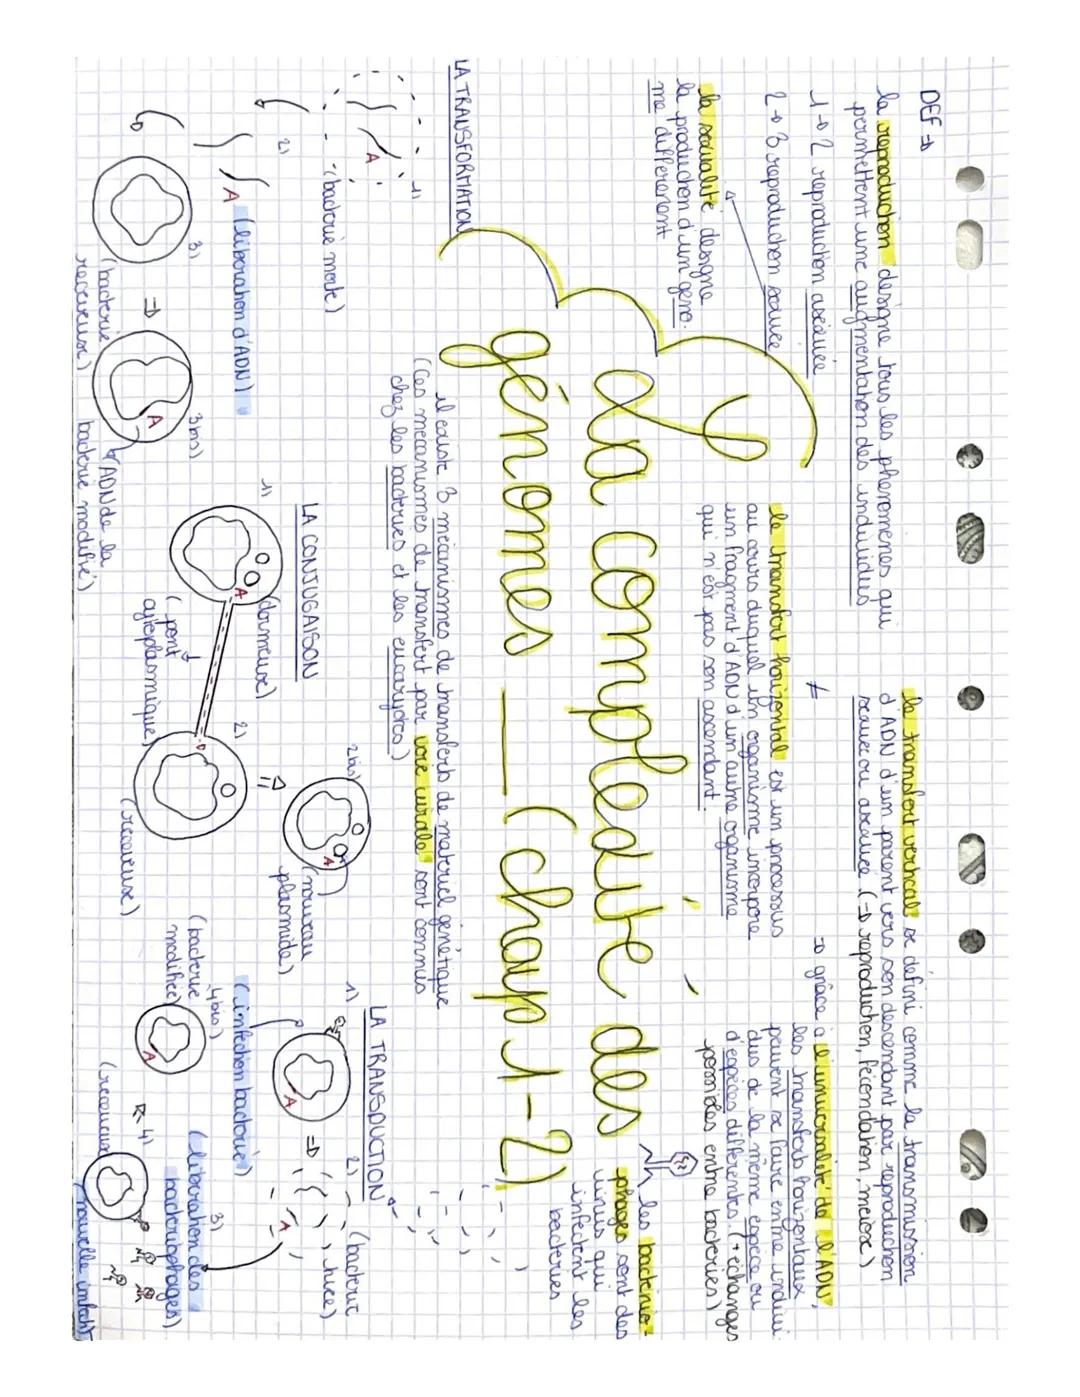 DEF →
la reproduction désigne tous les phénomènes qui
permettent une augmentation des individus
1 → 2 reproduction asexuée
2 → 3 reproduction sexuée
la sexualité désigne
la production d'un géno-
me différenent
le transfert vertical se défini comme la transmission
d'ADN d'un parent vers son descendant par reproduction
sexuée ou asexuée. (→ reproduction, fécondation, meïose)
≠
le transfert horizontal est un processus
au cours duquel un organisme incorpore
un fragment d'ADN d'un autre organisme
qui n'est pas son ascendant.
⇒ grâce à l'universalité de l'ADN,
les transferts horizontaux
peuvent se faire entre indivi-
dus de la même espèce ou
d'espèces différentes. (+ échanges
possibles entre bactéries)
La complexité des
génomes — (chap 1-2)
les bactério-
phages sont des
virus qui
infectent les
bactéries
il existe 3 mécanismes de transferts de matériel génétique
(Ces mécanismes de transfert par voie virale sont connus
chez les bactéries et les eucaryotes)
LA TRANSFORMATION
1)
A
(bactérie morte)
2)
A (libération d'ADN)
3)
(bactérie
receveuse)
⇒
3bis)
A
(ADN de la
bactérie modifié)
LA CONJUGAISON
1)
(donneuse)
A
(pont
cytoplasmique)
2)
(receveuse)
⇒
2bis)
A
(nouveau
plasmide)
LA TRANSDUCTION
1)
A
(infection bactérie)
⇒
2) (bactérie
lucée)
A
3)
(libération des
bactériophages)
4)
(receveuse)
(nouvelle infect°)
4bis)
(bactérie
modifiée)
A